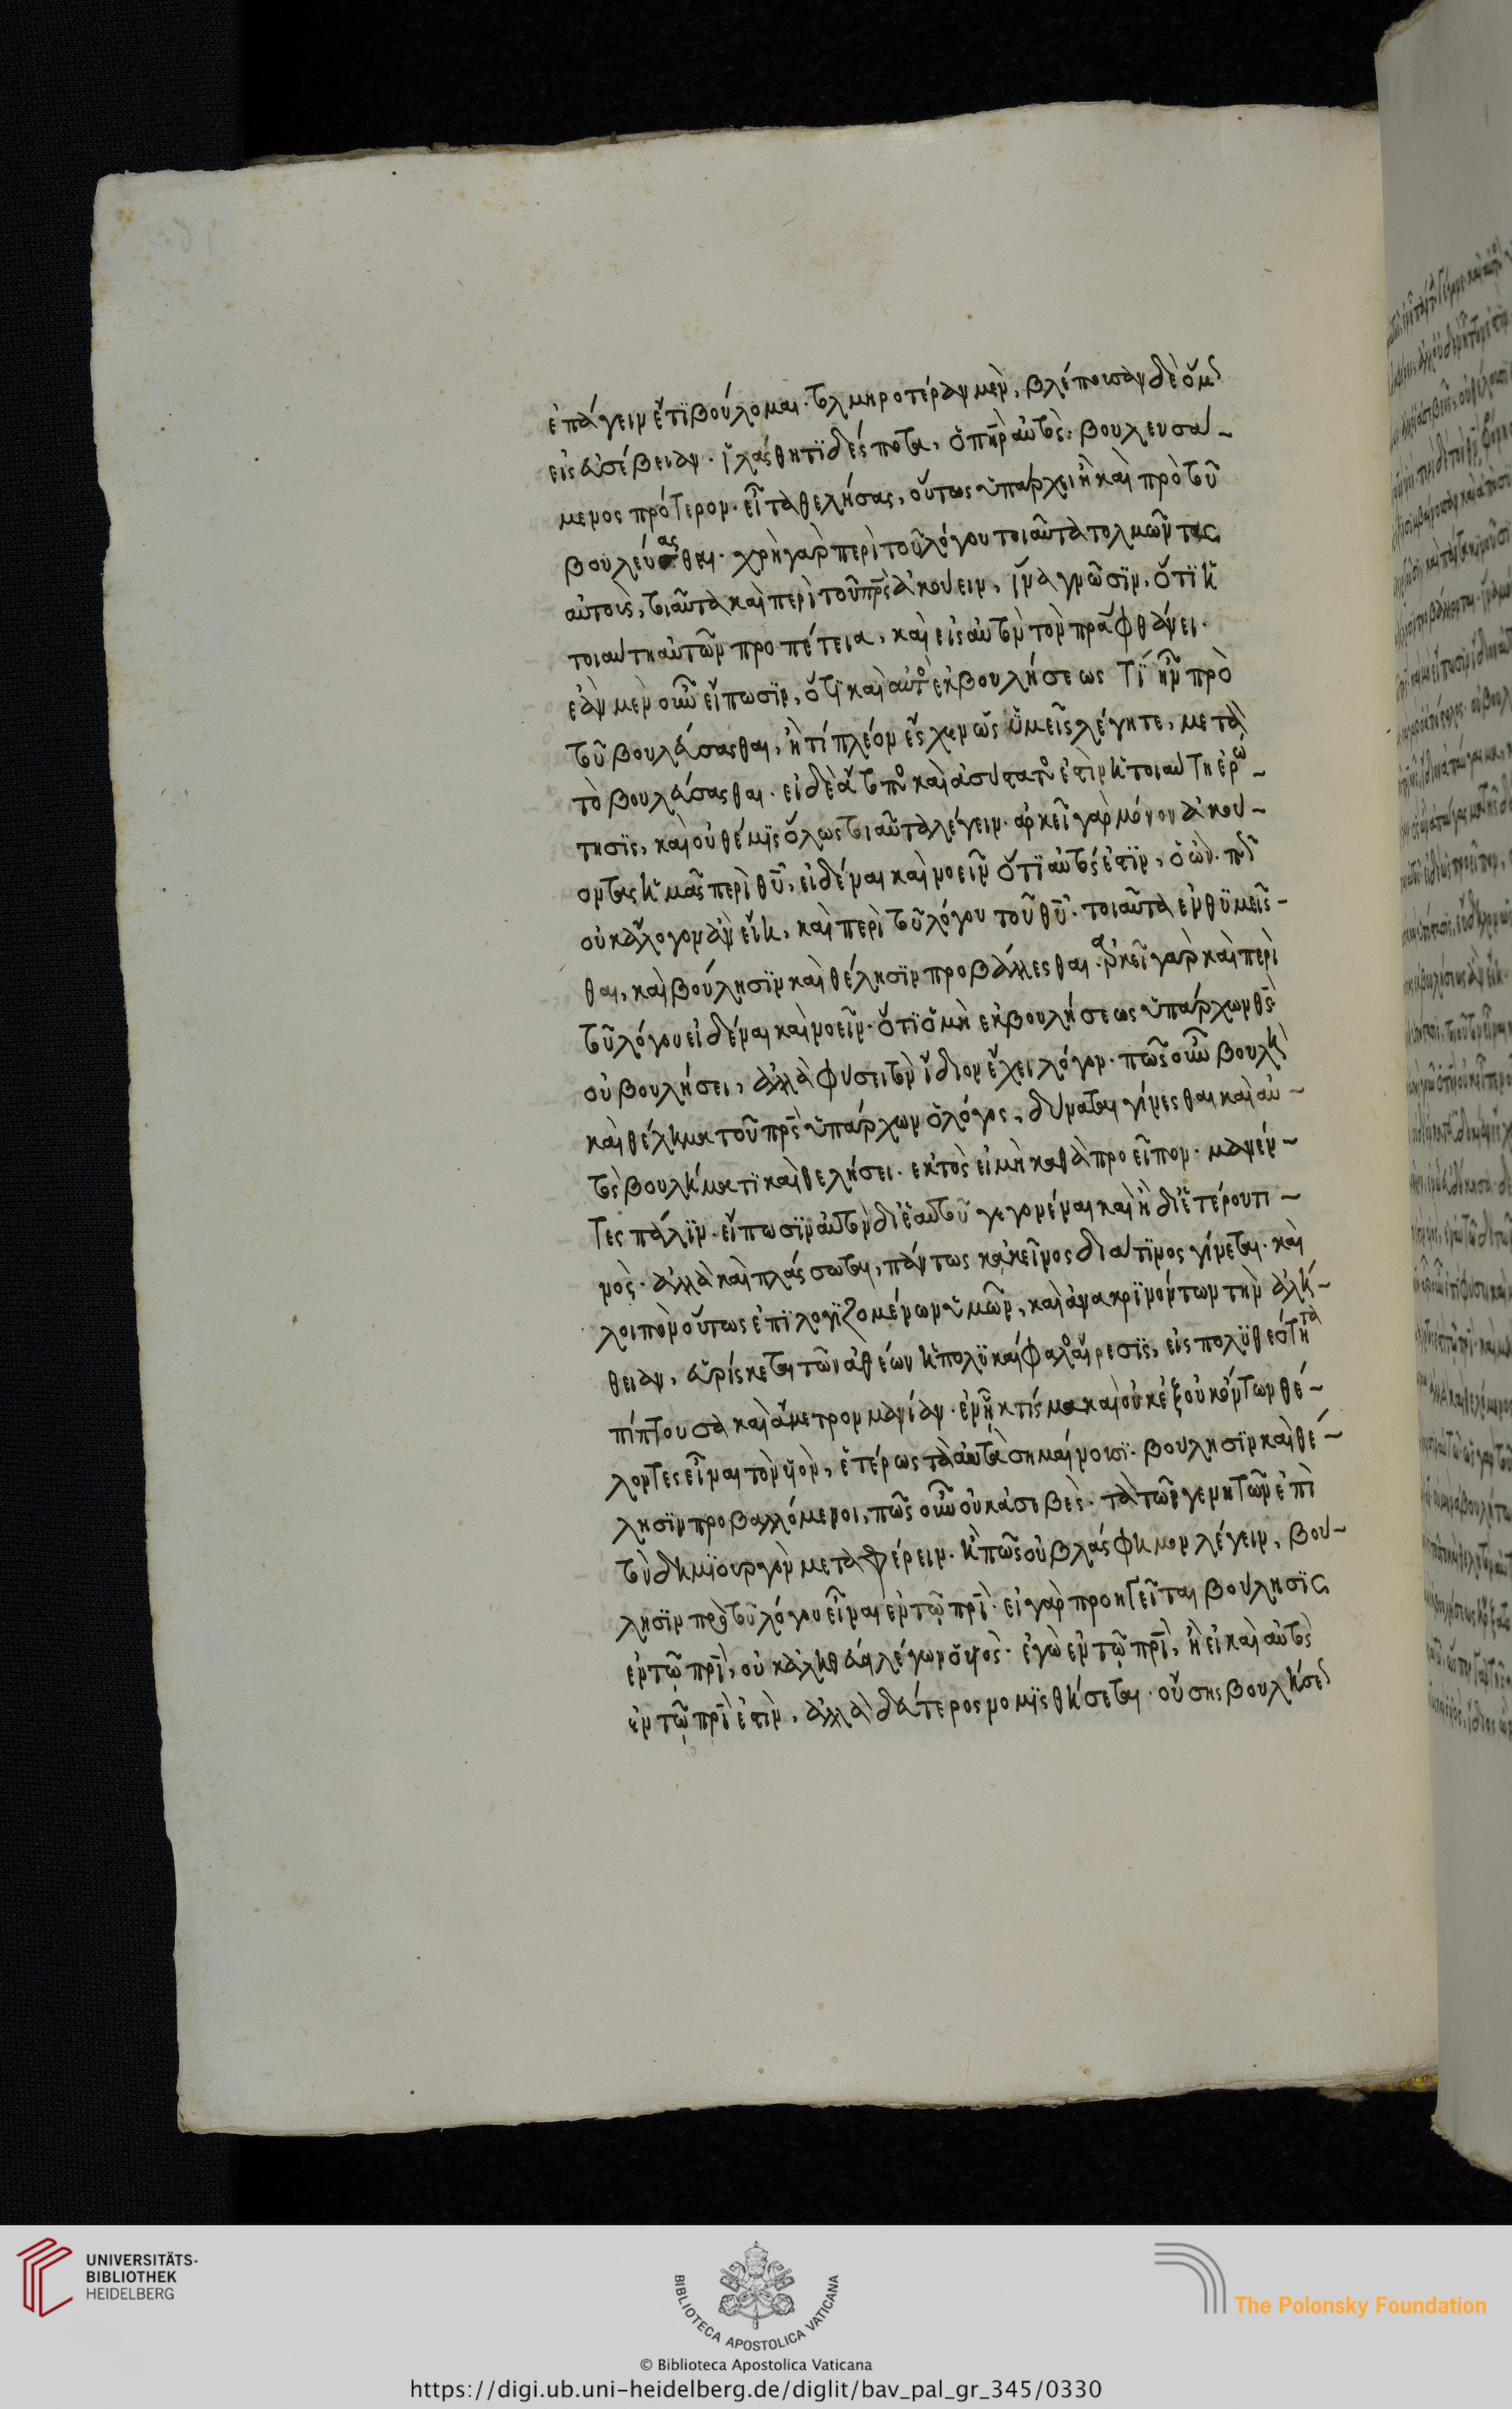 ἐπάγειν ἔτι βούλομαι· τολμηροτέραν μὲν, βλέπουσαν δὲ ὅμως
εἰς ἀσέβειαν· ἱλάσθητι δέσποτα, ὁ πὴρ αὐτὸς· βουλευσά-
μενος πρότερον· εἶτα θελήσας, οὕτως ὑπάρχει ἢ καὶ πρὸ τοῦ
βουλεύσασθαι· χρὴ γὰρ περὶ τοῦ λόγου τοιαῦτα τολμῶντας
αὐτοὺς, τοιαῦτα καὶ περὶ τοῦ πρς ἀκούειν, ἵνα γνῶσιν, ὅτι ἡ
τοιαύτη αὐτῶν προπέτεια, καὶ εἰς αὐτὸν τὸν πρα φθάνει·
ἐὰν μὲν οὖν εἴπωσιν, ὅτι καὶ αὐτὸς ἐκ βουλήσεως τί ἦν πρὸ
τοῦ βουλεύσασθαι, ἢ τί πλέον ἔσχεν ὡς ὑμεῖς λέγητε, μετὰ
τὸ βουλεύσασθαι· εἰ δὲ ἄτοπος καὶ ἀσύστατός ἐστιν ἡ τοιαύτη ἐρώ-
τησις, καὶ οὐ θέμις ὅλως τοιαῦτα λέγειν· ἀρκεῖ γὰρ μόνον ἀκού-
οντας ἡμᾶς περὶ θυ, εἰδέναι καὶ νοεῖν ὅτι αὐτός ἐστιν, ὁ ὤν· πῶς
οὐκ ἄλογον ἂν εἴη, καὶ περὶ τοῦ λόγου τοῦ θυ· τοιαῦτα ἐνθυμεῖσ-
θαι, καὶ βούλησιν καὶ θέλησιν προβάλλεσθαι· ἀρκεῖ γὰρ καὶ περὶ
τοῦ λόγου εἰδέναι καὶ νοεῖν· ὅτι ὁ μὴ ἐκ βουλήσεως ὑπάρχων θς
οὐ βουλήσει, ἀλλὰ φύσει τὸν ἴδιον ἔχει λόγον· πῶς οὖν βουλὴ
καὶ θέλημα τοῦ πρς ὑπάρχων ὁ λόγος, δύναται γίνεσθαι καὶ αὐ-
τὸς βουλήματι καὶ θελήσει· ἐκτὸς εἰ μὴ καθὰ προεῖπον· μανέν-
τες πάλιν· εἴπωσιν αὐτὸν δι ἑαυτοῦ γεγονέναι καὶ ἢ δι ἑτέρου τι-
νὸς· ἀλλὰ καὶ πλάσσωται, πάντως κἀκεῖνος διά τινος γίνεται· καὶ
λοιπὸν οὕτως ἐπιλογιζομένων ὑμῶν, καὶ ἀνακρινόντων τὴν ἀλή-
θειαν, εὑρίσκεται τῶν ἀθέων ἡ πολυκέφαλος αἵρεσις, εἰς πολυθεότητα
πίπτουσα καὶ ἄμετρον μανίαν· ἐν ᾗ κτίσμα καὶ οὐκ ἐξ οὐκ ὄντων θέ-
λοντες εἶναι τὸν υἱὸν, ἑτέρως τὰ αὐτὰ σημαίνουσι· βούλησιν καὶ θέ-
λησιν προβαλλόμενοι, πῶς οὖν οὐκ ἀσεβὲς· τὰ τῶν γενητῶν ἐπὶ
τὸν δημιουργὸν μεταφέρειν· ἢ πῶς οὐ βλάσφημον λέγειν, βού-
λησιν πρὸ τοῦ λόγου εἶναι ἐν τῷ πρὶ· εἰ γὰρ προηγεῖται βούλησις
ἐν τῷ πρὶ, οὐκ ἀληθεύει λέγων ὁ υἱὸς· ἐγὼ ἐν τῷ πρὶ, ἢ εἰ καὶ αὐτὸς
ἐν τῷ πρὶ ἐστιν, ἀλλὰ δεύτερος νομισθήσεται· οὔσης βουλήσεως
UNIVERSITÄTS-
BIBLIOTHEK
HEIDELBERG
BIBLIOTECA APOSTOLICA VATICANA
The Polonsky Foundation
© Biblioteca Apostolica Vaticana
https://digi.ub.uni-heidelberg.de/diglit/bav_pal_gr_345/0330